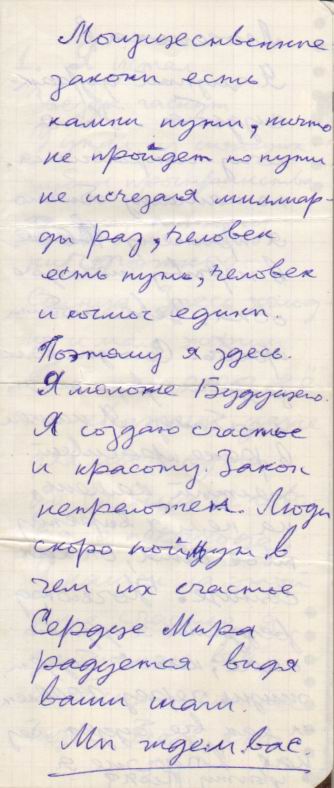 Могущественные
законы есть
камни пути, ничто
не пройдет по пути
не исчезая миллиар-
ды раз, человек
есть путь, человек
и космос едины.
Поэтому я здесь.
Я моложе Будущего.
Я создаю счастье
и красоту. Закон
непреложен. Люди
скоро поймут в
чем их счастье
Сердце Мира
радуется видя
ваши шаги.
Мы ждем вас.